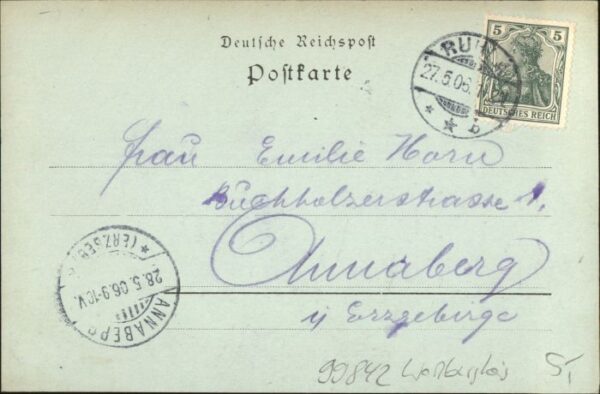 Deutsche Reichspost
Postkarte
5 5
DEUTSCHES REICH
RUH
27.5.06.
* * * b
Frau Emilie Horn
Buchholzerstrasse 1.
Annaberg
i/ Erzgebirge
ANNABERG
(ERZGEB
28.5.06.9-10V.
99842
5,-